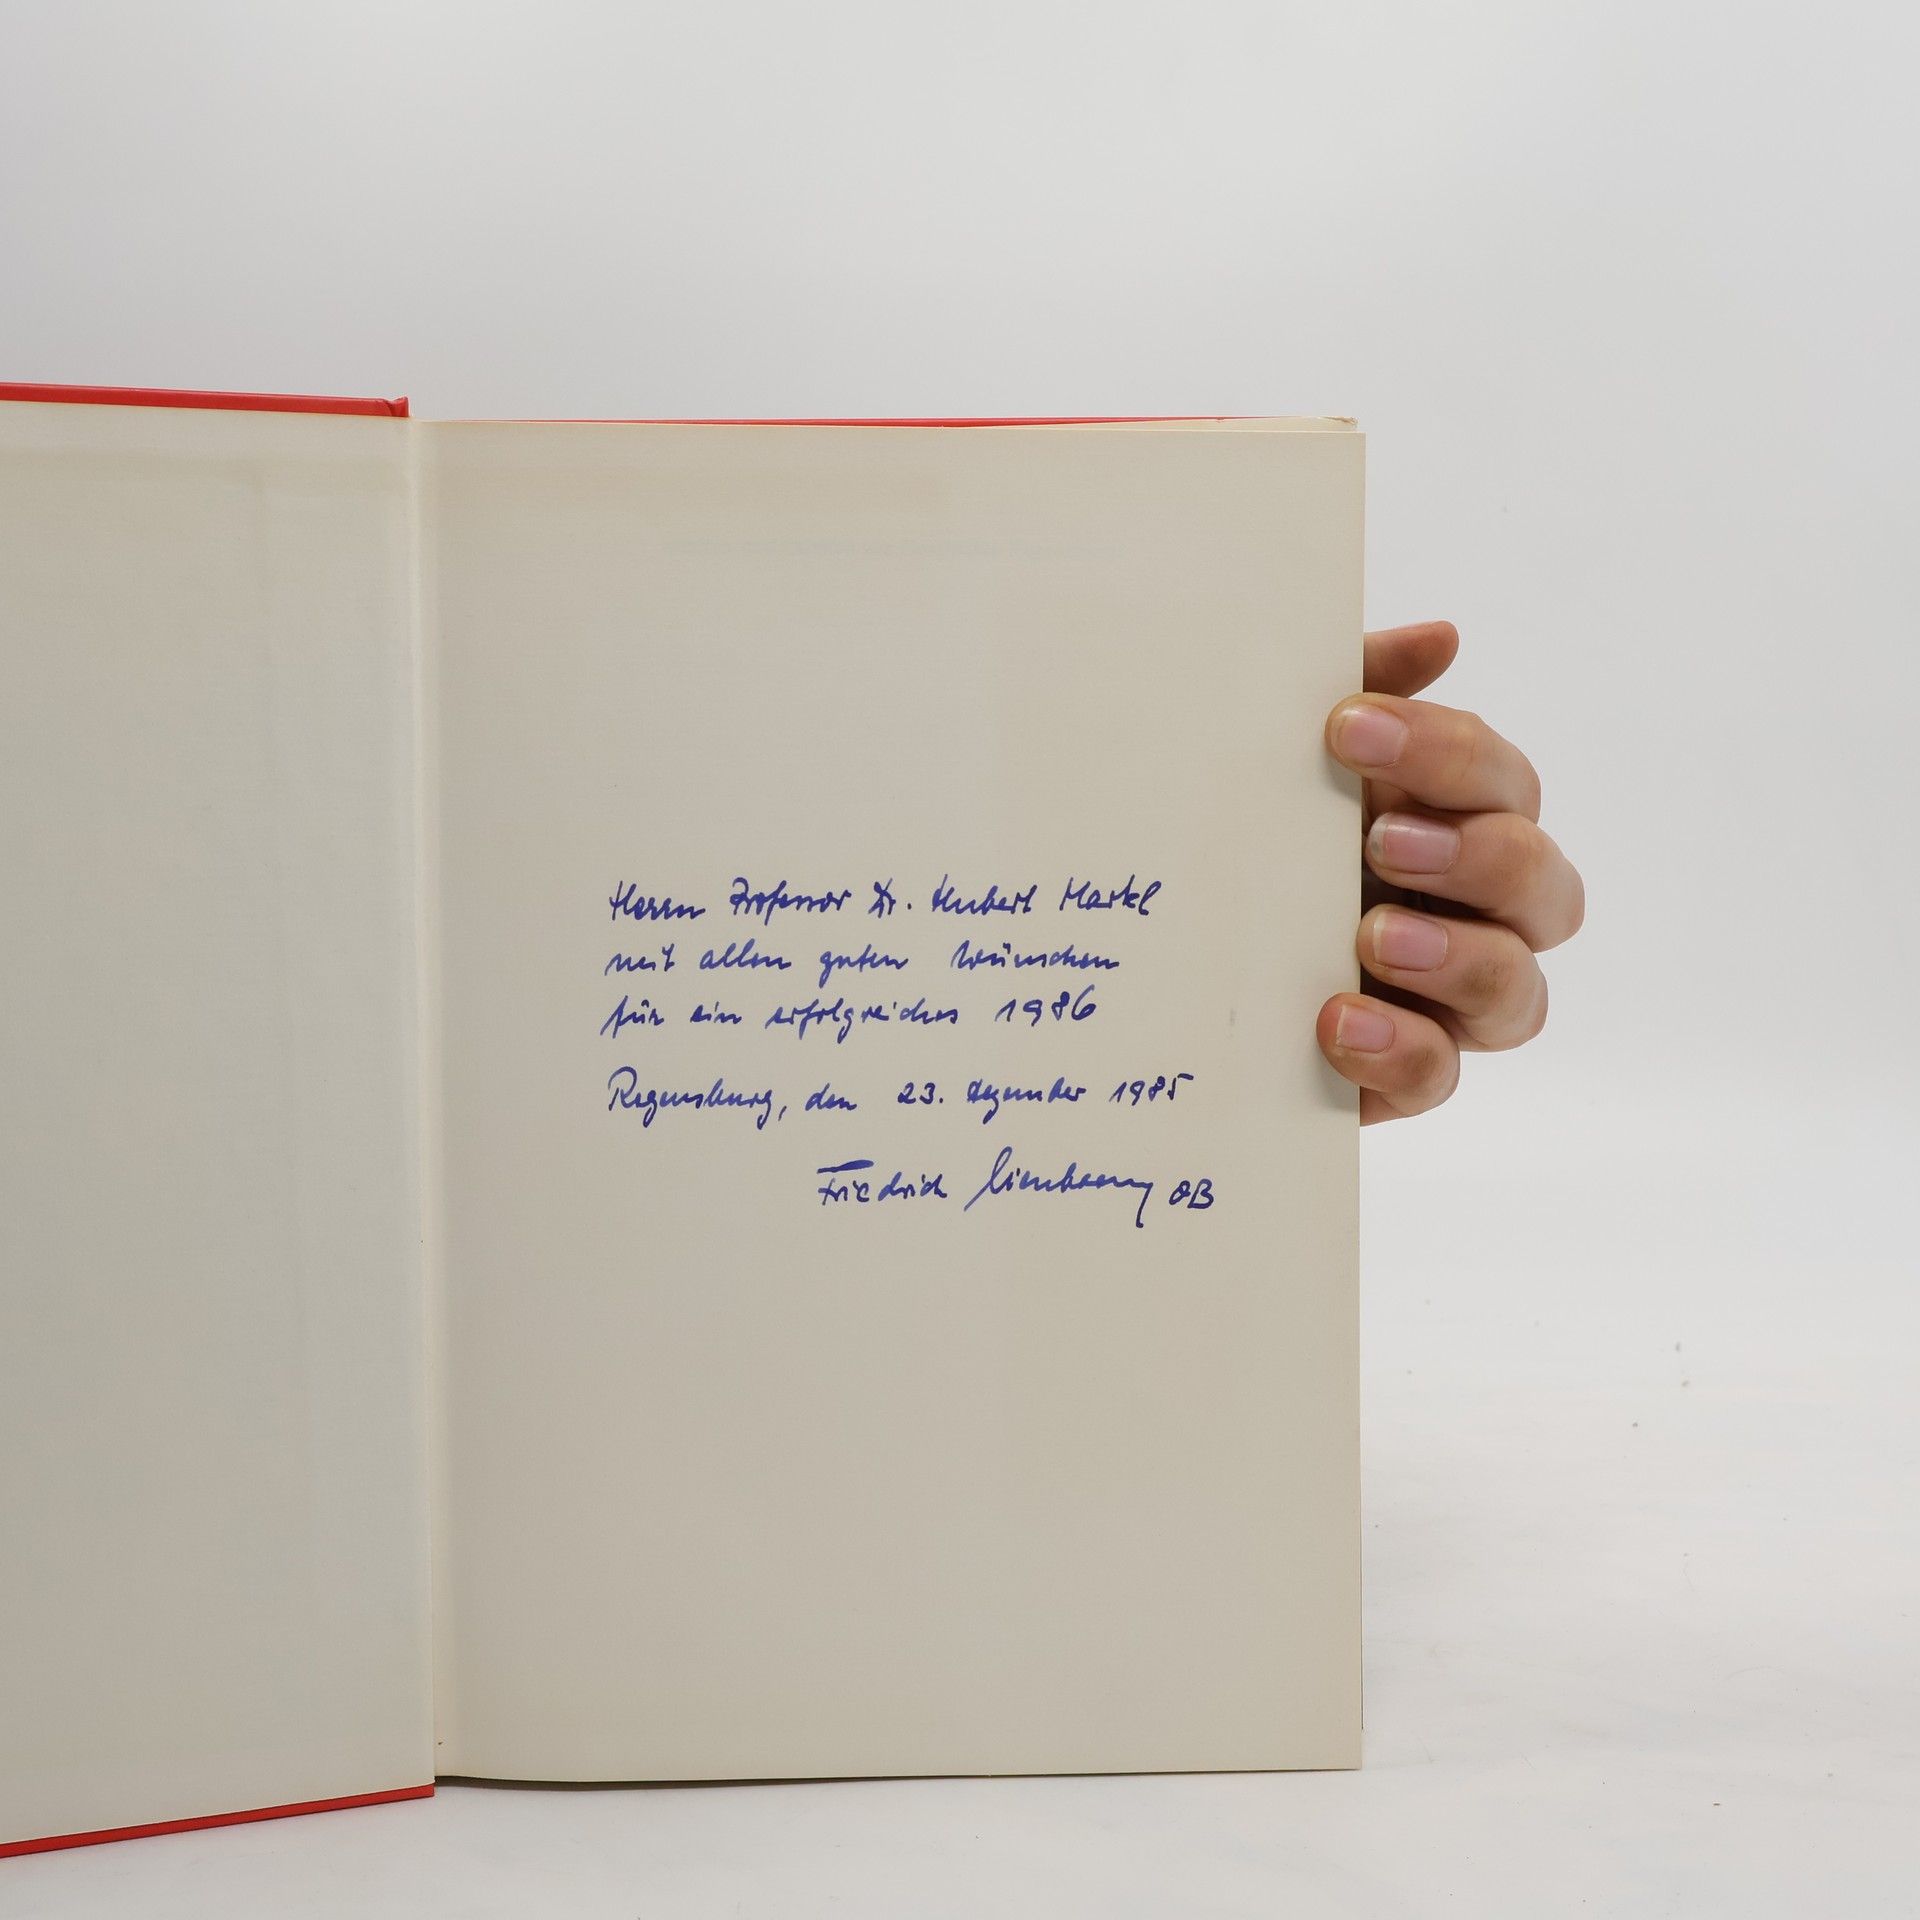 Herrn Professor Dr. Hubert Markl
mit allen guten Wünschen
für ein erfolgreiches 1986
Regensburg, den 23. Dezember 1985
Friedrich Viehbacher OB